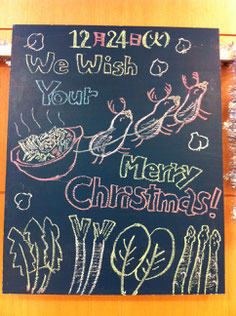 12月24日(火)
We Wish
Your
Merry
Christmas!